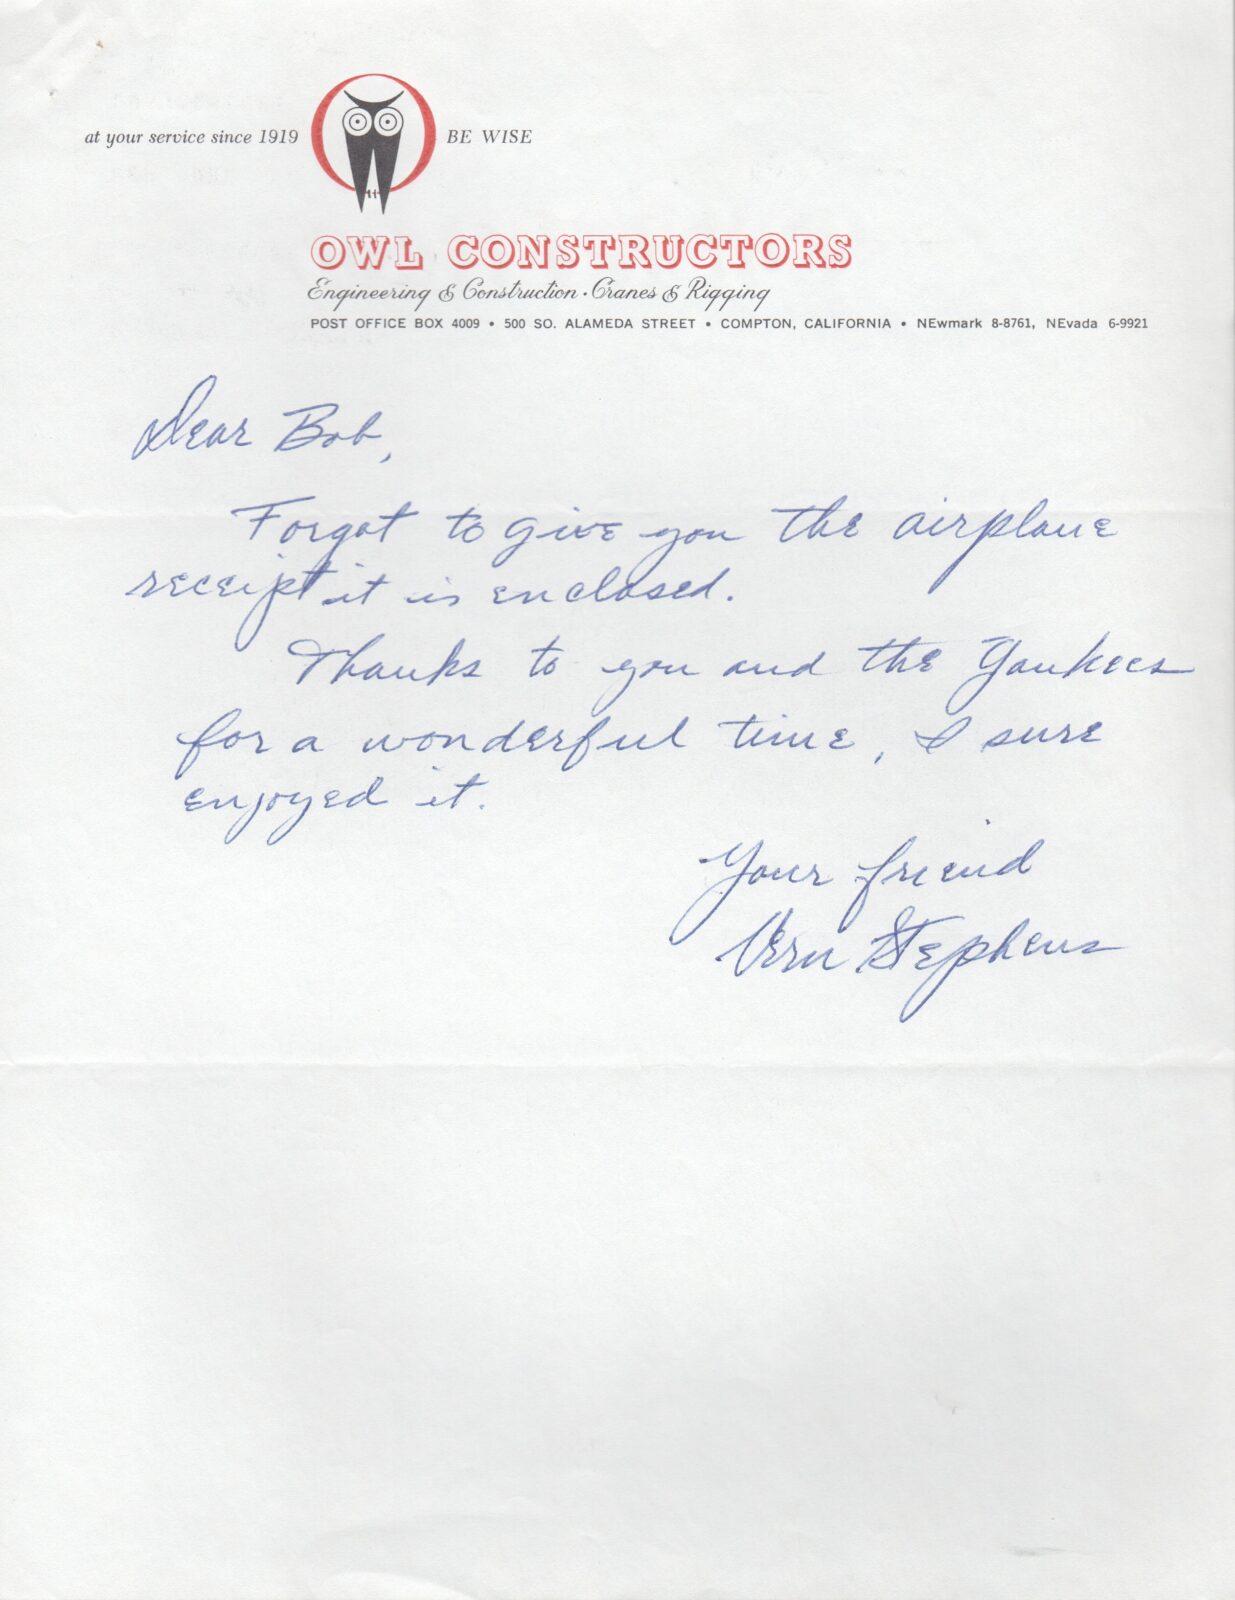 at your service since 1919 BE WISE
OWL CONSTRUCTORS
Engineering & Construction · Cranes & Rigging
POST OFFICE BOX 4009 • 500 SO. ALAMEDA STREET • COMPTON, CALIFORNIA • NEwmark 8-8761, NEvada 6-9921
Dear Bob,
Forgot to give you the airplane
receipt it is enclosed.
Thanks to you and the Yankees
for a wonderful time, I sure
enjoyed it.
Your friend
Vern Stephens